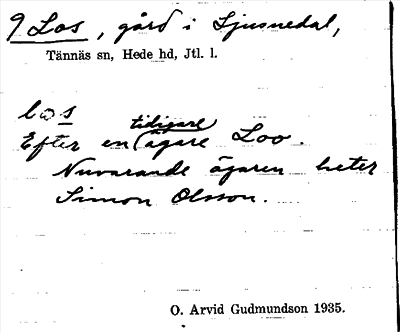 9 Los, gård i Ljusnedal,
Tännäs sn, Hede hd, Jtl. l.
lωs
Efter en tidigare ägare Loo.
Nuvarande ägaren heter
Simon Olsson.
O. Arvid Gudmundson 1935.